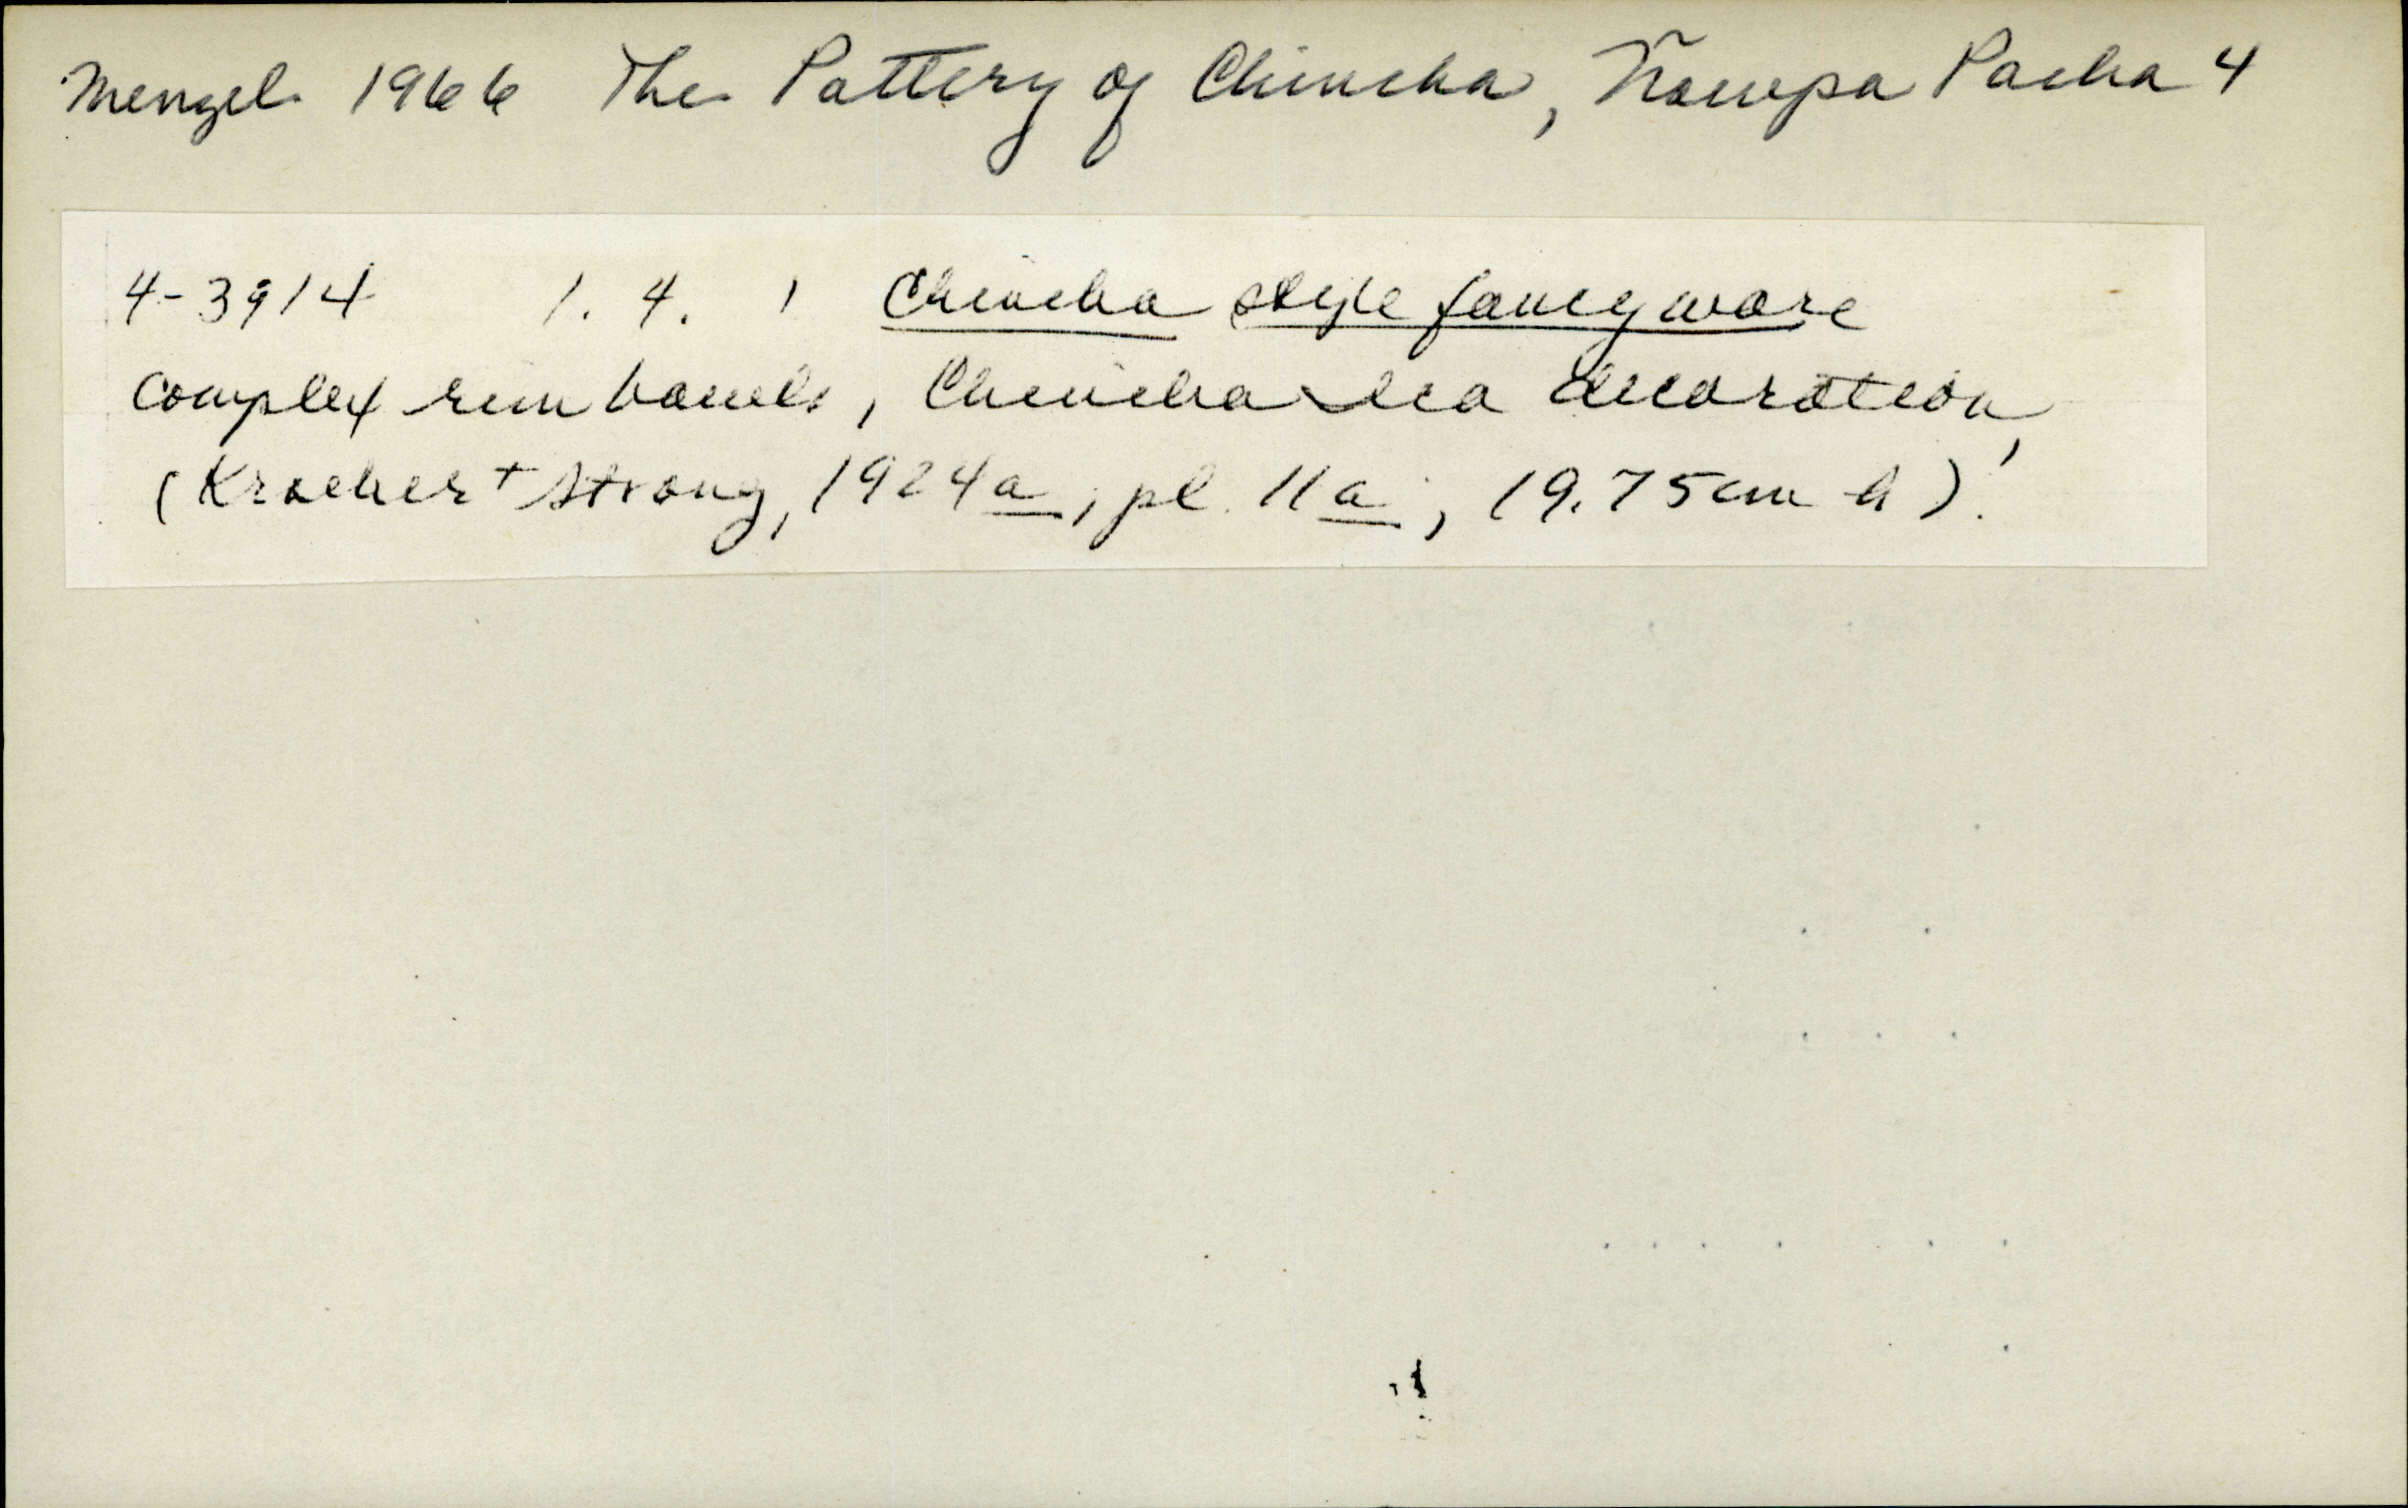 Menzel 1966 The Pottery of Chincha, Ñawpa Pacha 4
4-3914 1. 4. 1 Chincha style fancy ware
complex rim bowls, Chincha Ica decoration,
(Kroeber + Strong, 1924a, pl. 11a, 19.75cm h).